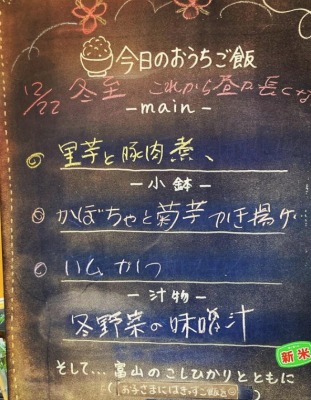 今日のおうちご飯
12/22 冬至 これから昼が長くな
-main-
里芋と豚肉煮、
-小鉢-
かぼちゃと菊芋かき揚げ
ハムかつ
-汁物-
冬野菜の味噌汁
新米
そして…富山のこしひかりとともに